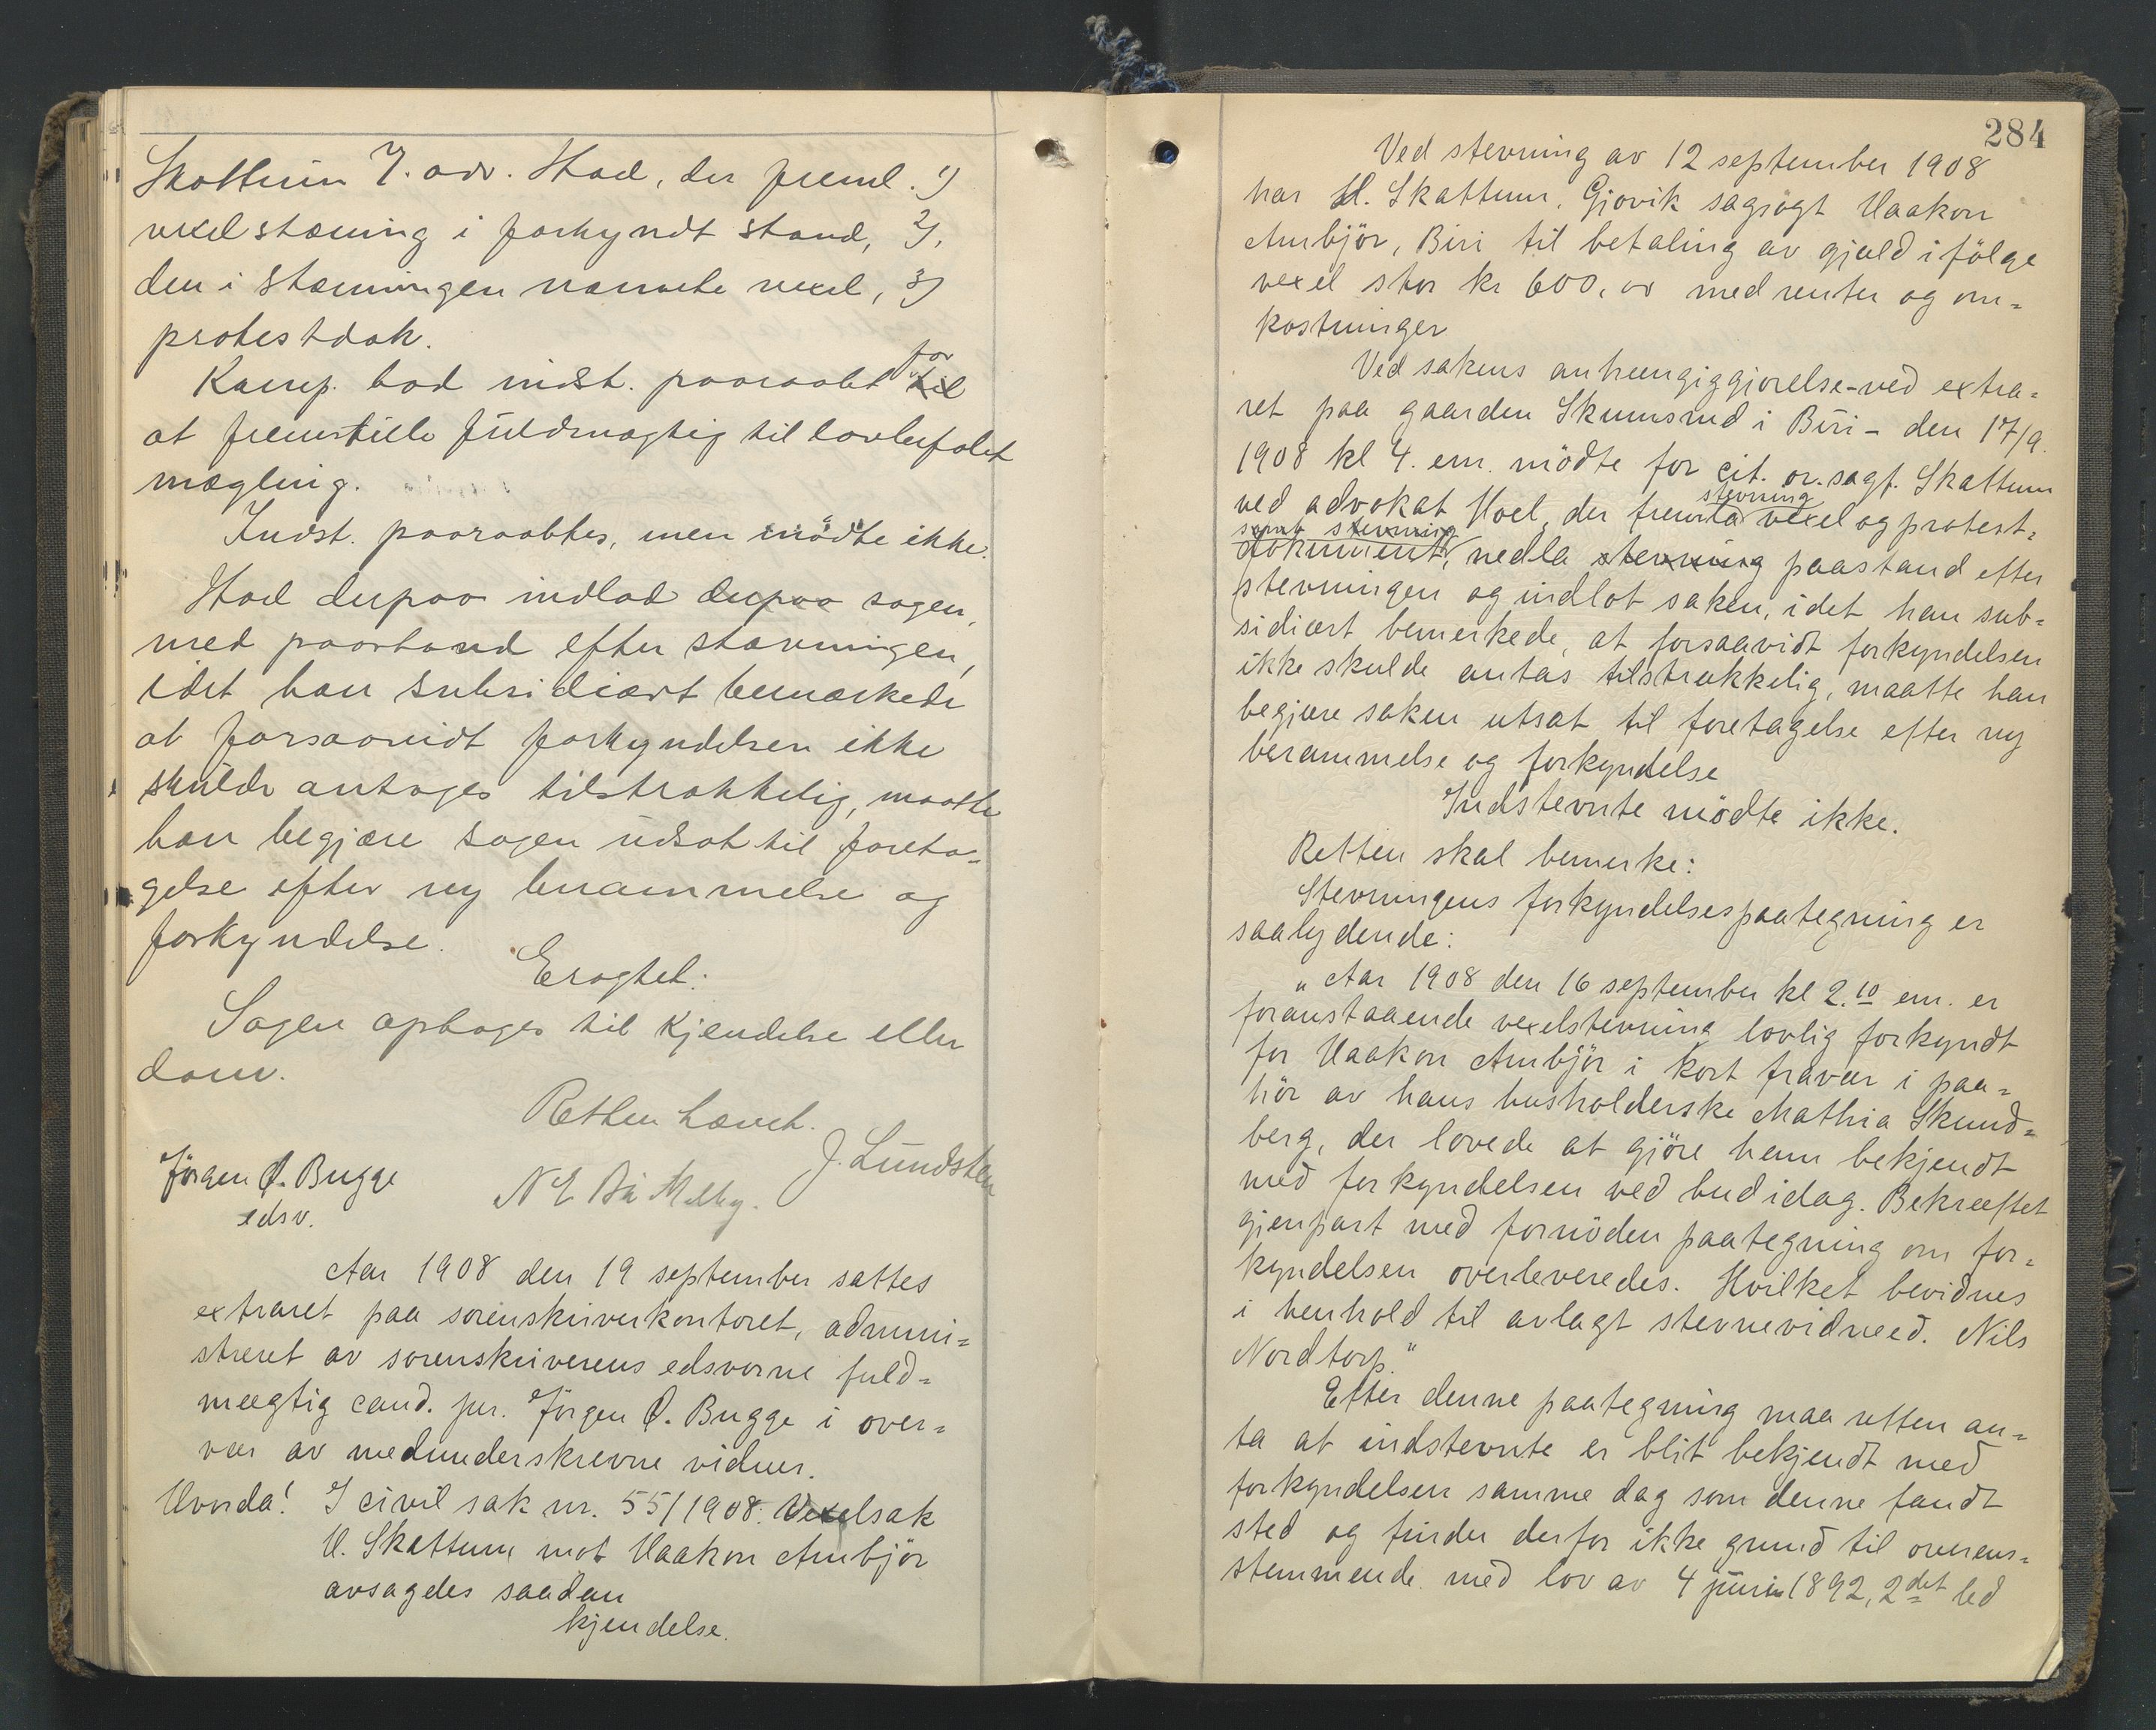 Skattum v. adv. Hoel, der freml. 1)
vexelstævning i forkyndt stand, 2),
den i stævningen nævnte vexel, 3)
protestdok.
Kamp. lod indst. paaraabt for til
at fremstille fuldmægtig til lovbefalet
mægling.
Indst. paaraabtes, men mödte ikke.
Hoel derpaa indlod derpaa sagen,
med paastand efter stævningen,
idet han subsidiært bemærkede
at forsaavidt forkyndelsen ikke
skulde antages tilstrækkelig, maatte
han begjære sagen udsat til foreta-
gelse efter ny berammelse og
forkyndelse.
Eragtet:
Sagen optages til kjendelse eller
dom.
Retten hævet.
Jörgen Q. Bugge
edsv.
J. Lundsten
Aar 1908 den 19 september sattes
extraret paa sorenskriverkontoret, admini=
streret av sorenskriverens edsvorne fuld=
mægtig cand. jur. Jörgen Q. Bugge i over=
vær av medunderskrevne vidner.
Hvorda! I civil sak nr. 55/1908: Vexelsak
H. Skattum mot Haakon Ambjör
avsagdes saadan
kjendelse.
284
Ved stevning av 12 september 1908
har H. Skattum, Gjøvik sagsögt Haakon
Ambjör, Biri til betaling av gjæld ifölge
vexel stor kr 600, or med renter og om=
kostninger
Ved sakens anhængiggjørelse - ved extra=
ret paa gaarden Skumsrud i Biri - den 17/9.
1908 kl 4. em. mödte for cit. or. sagf. Skattum
stevning
ved advokat Hoel, der fremla vexel og protest=
samt stevning
dokument, nedla stevning paastand efter
stevningen og indlot saken, idet han sub=
sidiært bemerkede, at forsaavidt forkyndelsen
ikke skulde antas tilstrækkelig, maatte han
begjære saken utsat til foretagelse efter ny
berammelse og forkyndelse
Indstevnte mödte ikke.
Retten skal bemerke:
Stevningens forkyndelsespaategning er
saalydende:
"Aar 1908 den 16 september kl 2.10 em. er
foranstaaende vexelstevning lovlig forkyndt
for Haakon Ambjör i kort fravær i paa=
hör av hans husholderske Mathia Skund=
berg, der lovede at gjöre ham bekjendt
med forkyndelsen ved bud idag. Bekræftet
gjenpart med fornöden paategning om for=
kyndelsen overleveredes. Hvilket bevidnes
i henhold til avlagt stevnevidneed. Nils
Nordtorp."
Efter denne paategning maa retten an=
ta at indstevnte er blit bekjendt med
forkyndelsen samme dag som denne fandt
sted og finder derfor ikke grund til overens=
stemmende med lov av 4 juni 1892, 2det led